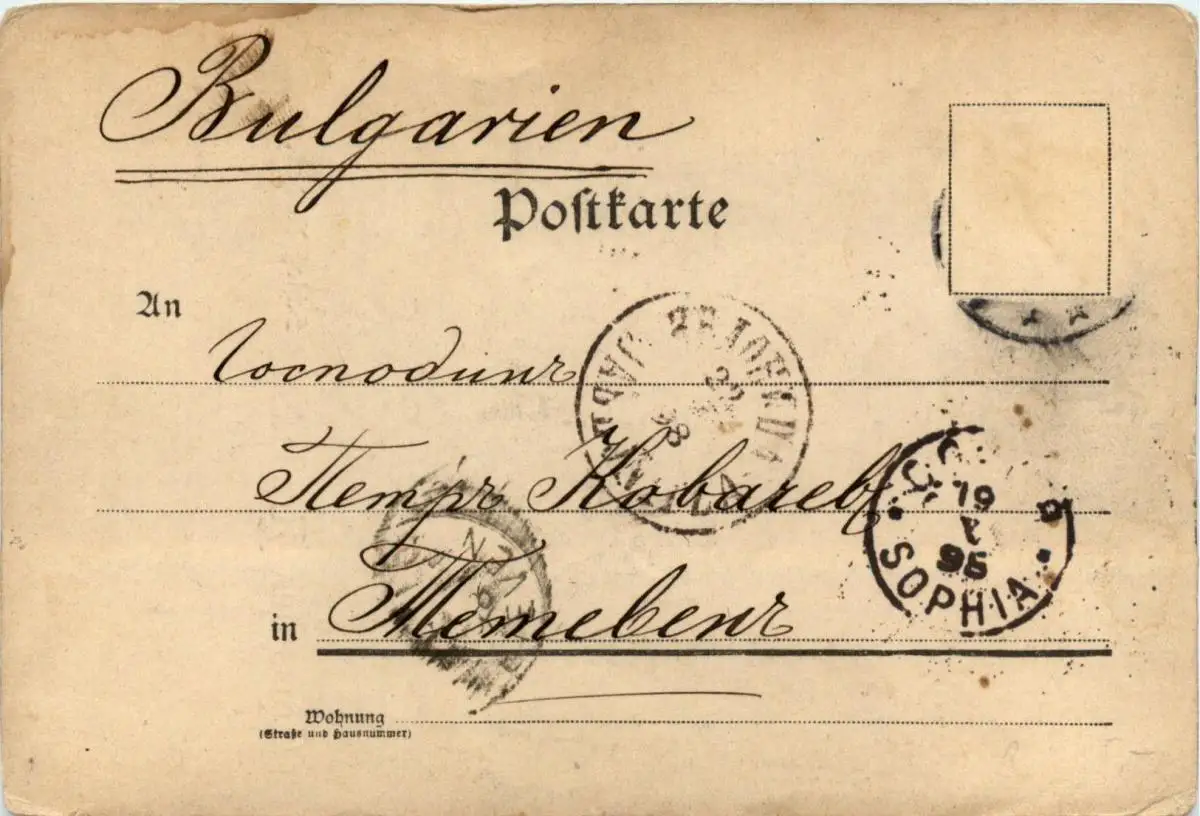 Bulgarien
Postkarte
An
Господинъ
Петръ Ковачевъ
in Тетевенъ
Wohnung
(Straße und Hausnummer)
19
SOPHIA